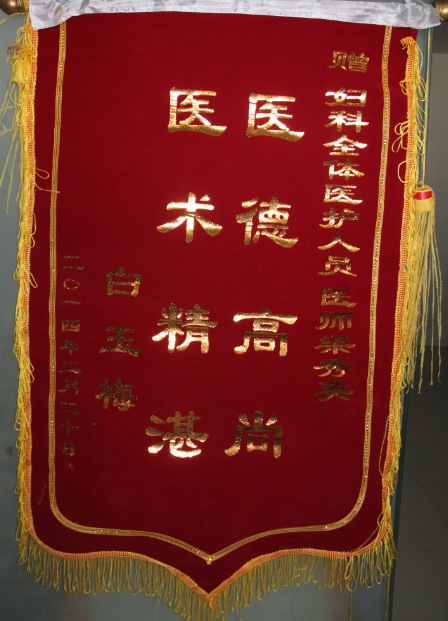 赠 妇科全体医护人员 医师梁秀英
医德高尚
医术精湛
白玉梅
二〇一四年二月二十日